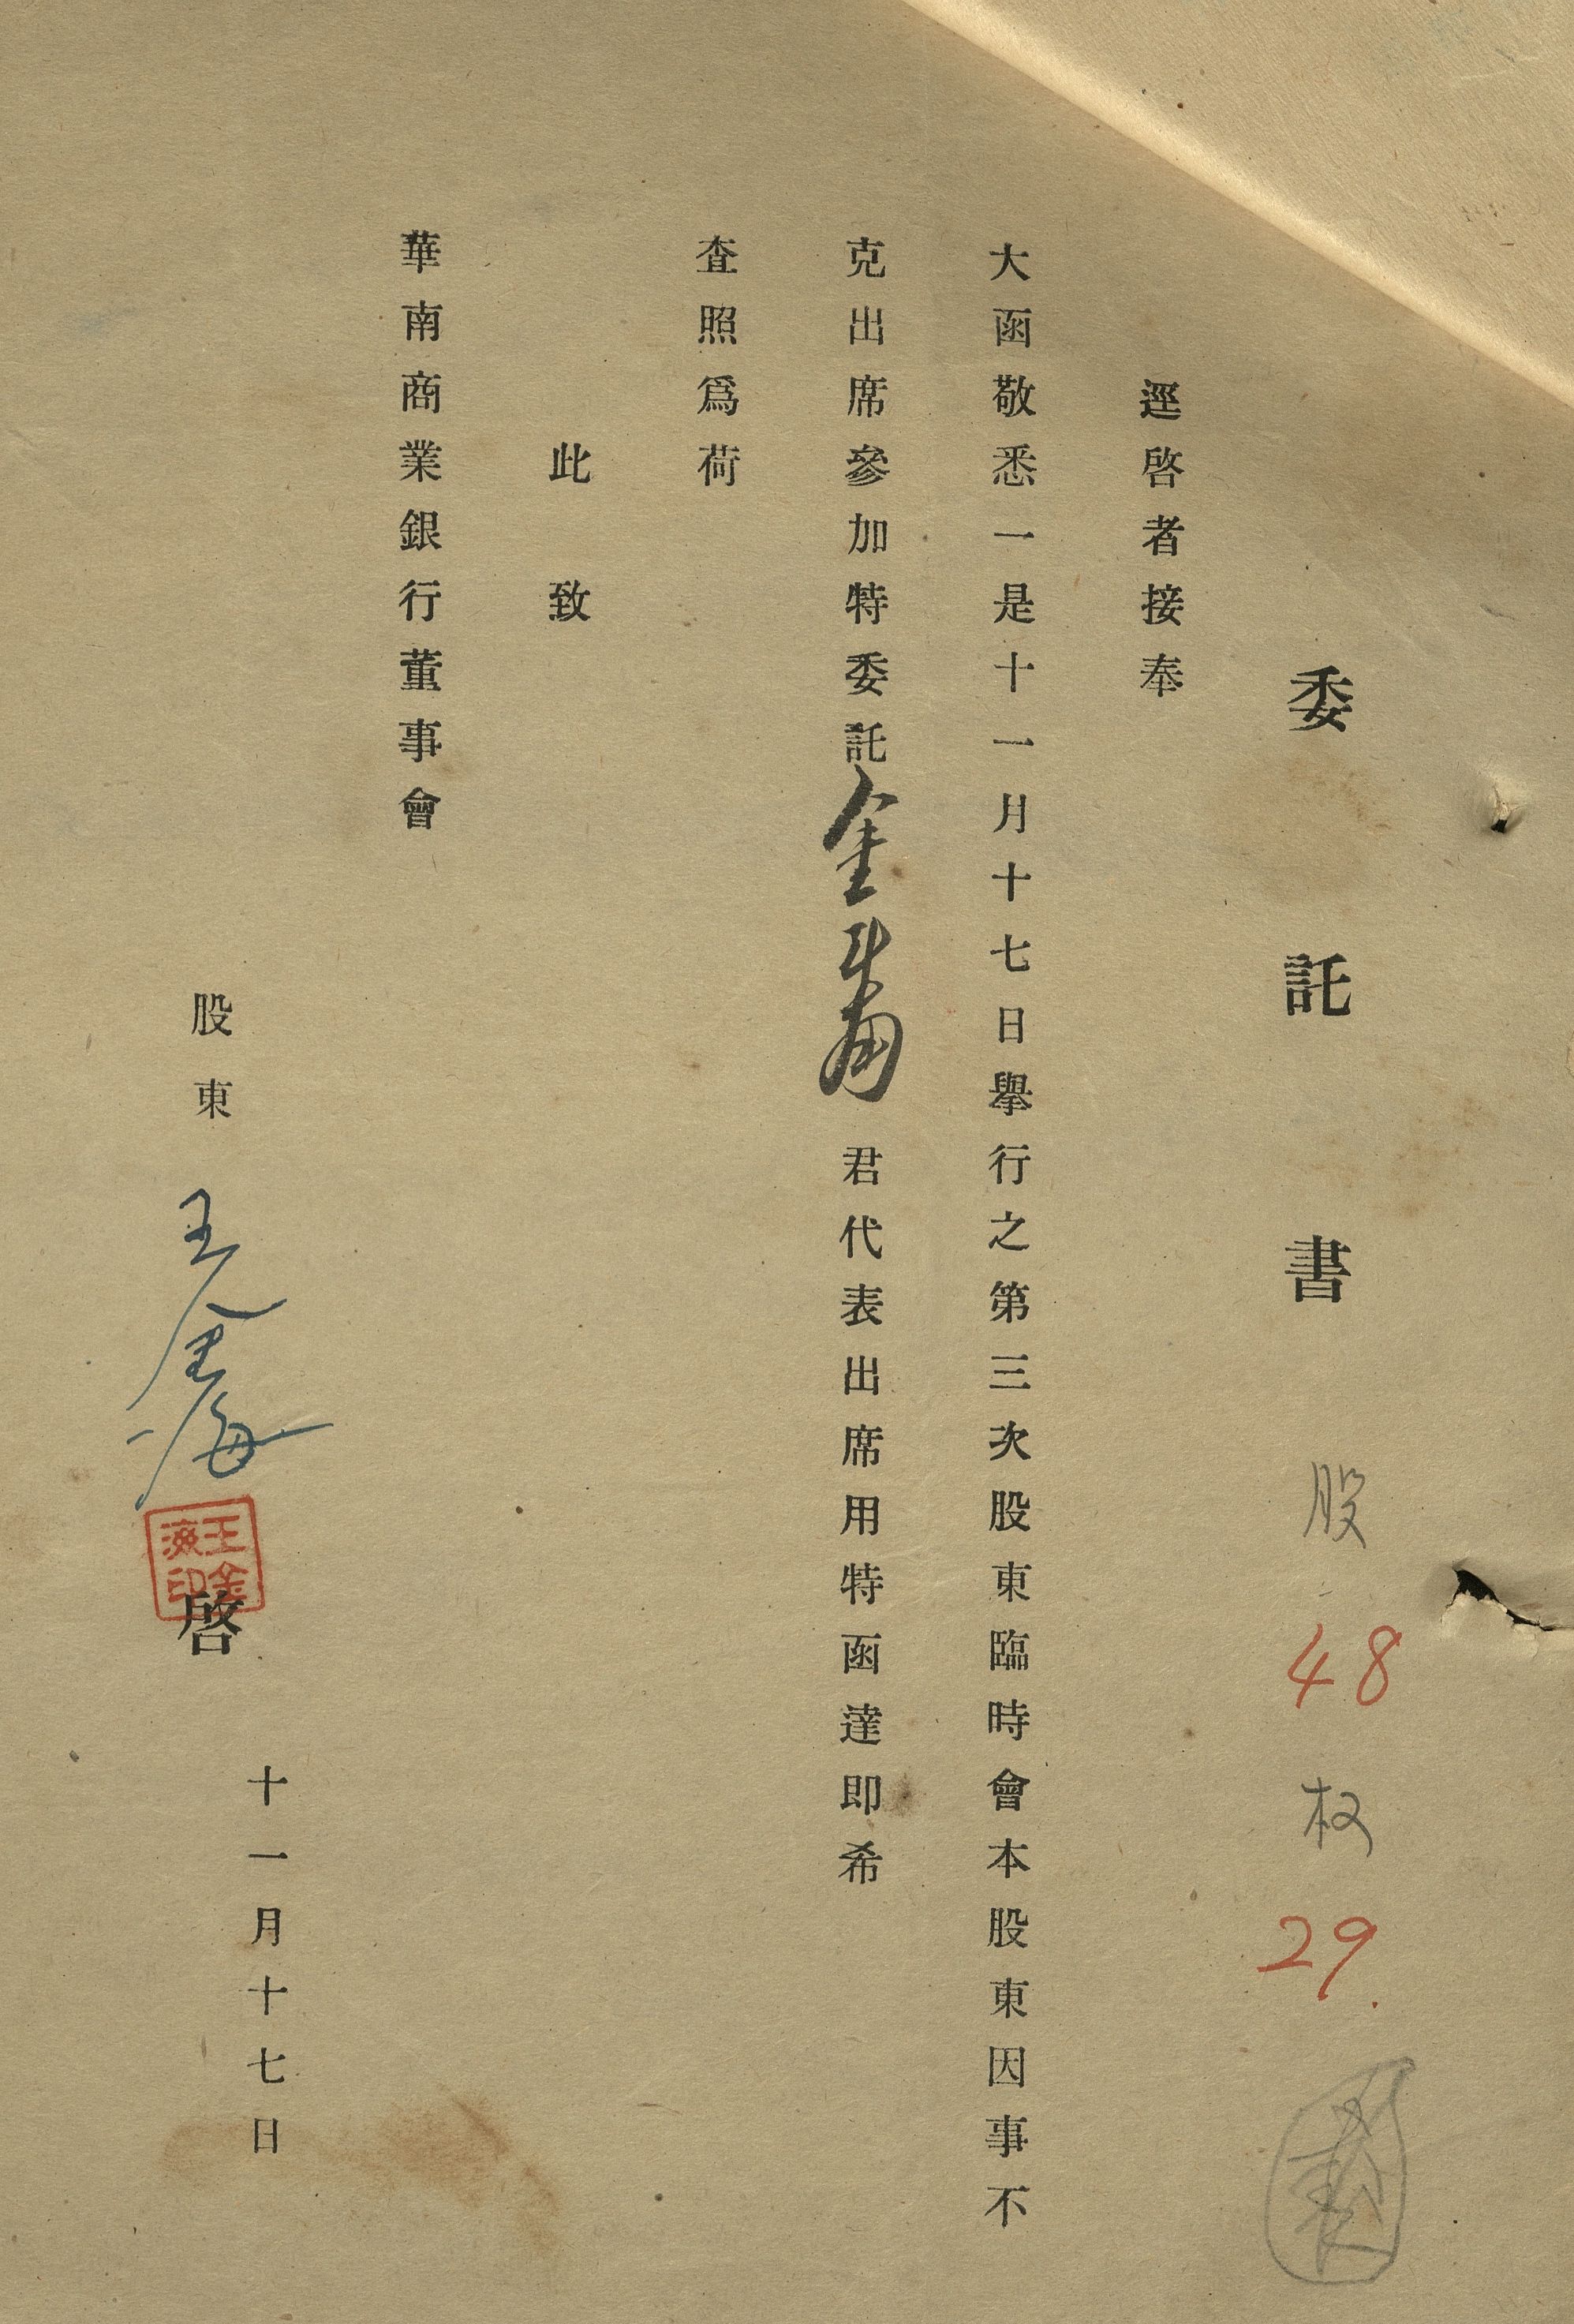 委託書 股 48 权 29.
逕啓者接奉
大函敬悉一是十一月十七日舉行之第三次股東臨時會本股東因事不
克出席參加特委託金 君代表出席用特函達即希
查照爲荷
此致
華南商業銀行董事會
股東 王金海 啓
王金海印
十一月十七日